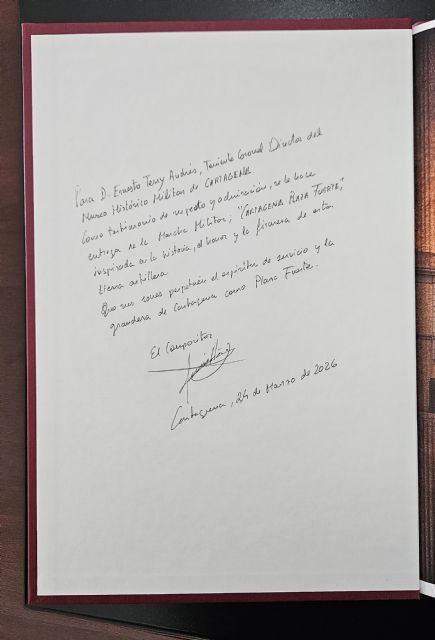 Para D. Ernesto Terry Andrés, Teniente Coronel Director del
Museo Histórico Militar de CARTAGENA.
Como testimonio de respeto y admiración, se le hace
entrega de la Marcha Militar, "CARTAGENA PLAZA FUERTE,"
inspirada en la historia, el honor y la firmeza de esta
tierra artillera.
Que sus sones perpetúen el espíritu de servicio y la
grandeza de Cartagena como Plaza Fuerte.
El Compositor
Cartagena, 24 de Marzo de 2026